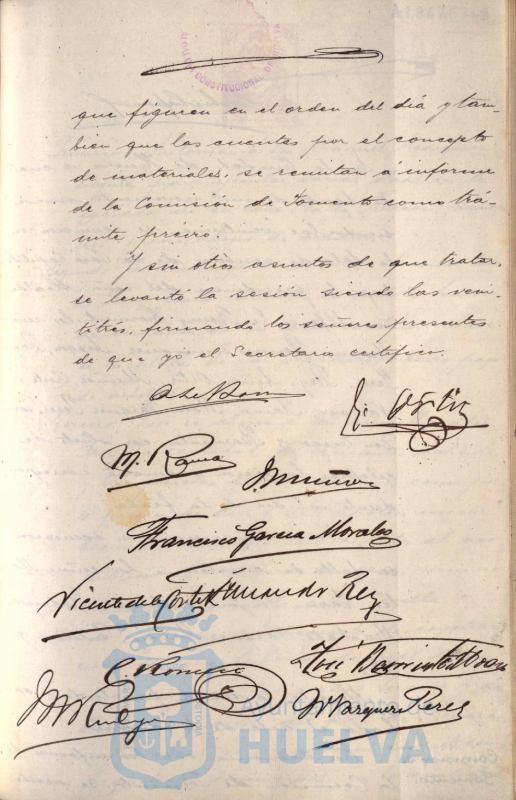 que figuren en el orden del dia y tam-
bien que las cuentas por el concepto
de materiales, se remitan á informe
de la Comisión de Fomento como trá-
mite previo.
Y sin otros asuntos de que tratar,
se levantó la sesión siendo las vein-
titrés, firmando los señores presentes
de que yo el Secretario certifico.
M.
J. Muñoz
Francisco Garcia Morales
Vicente de la Corte Rey
C. Romero José
M Vazquez Perez
Ayuntamiento de
HUELVA